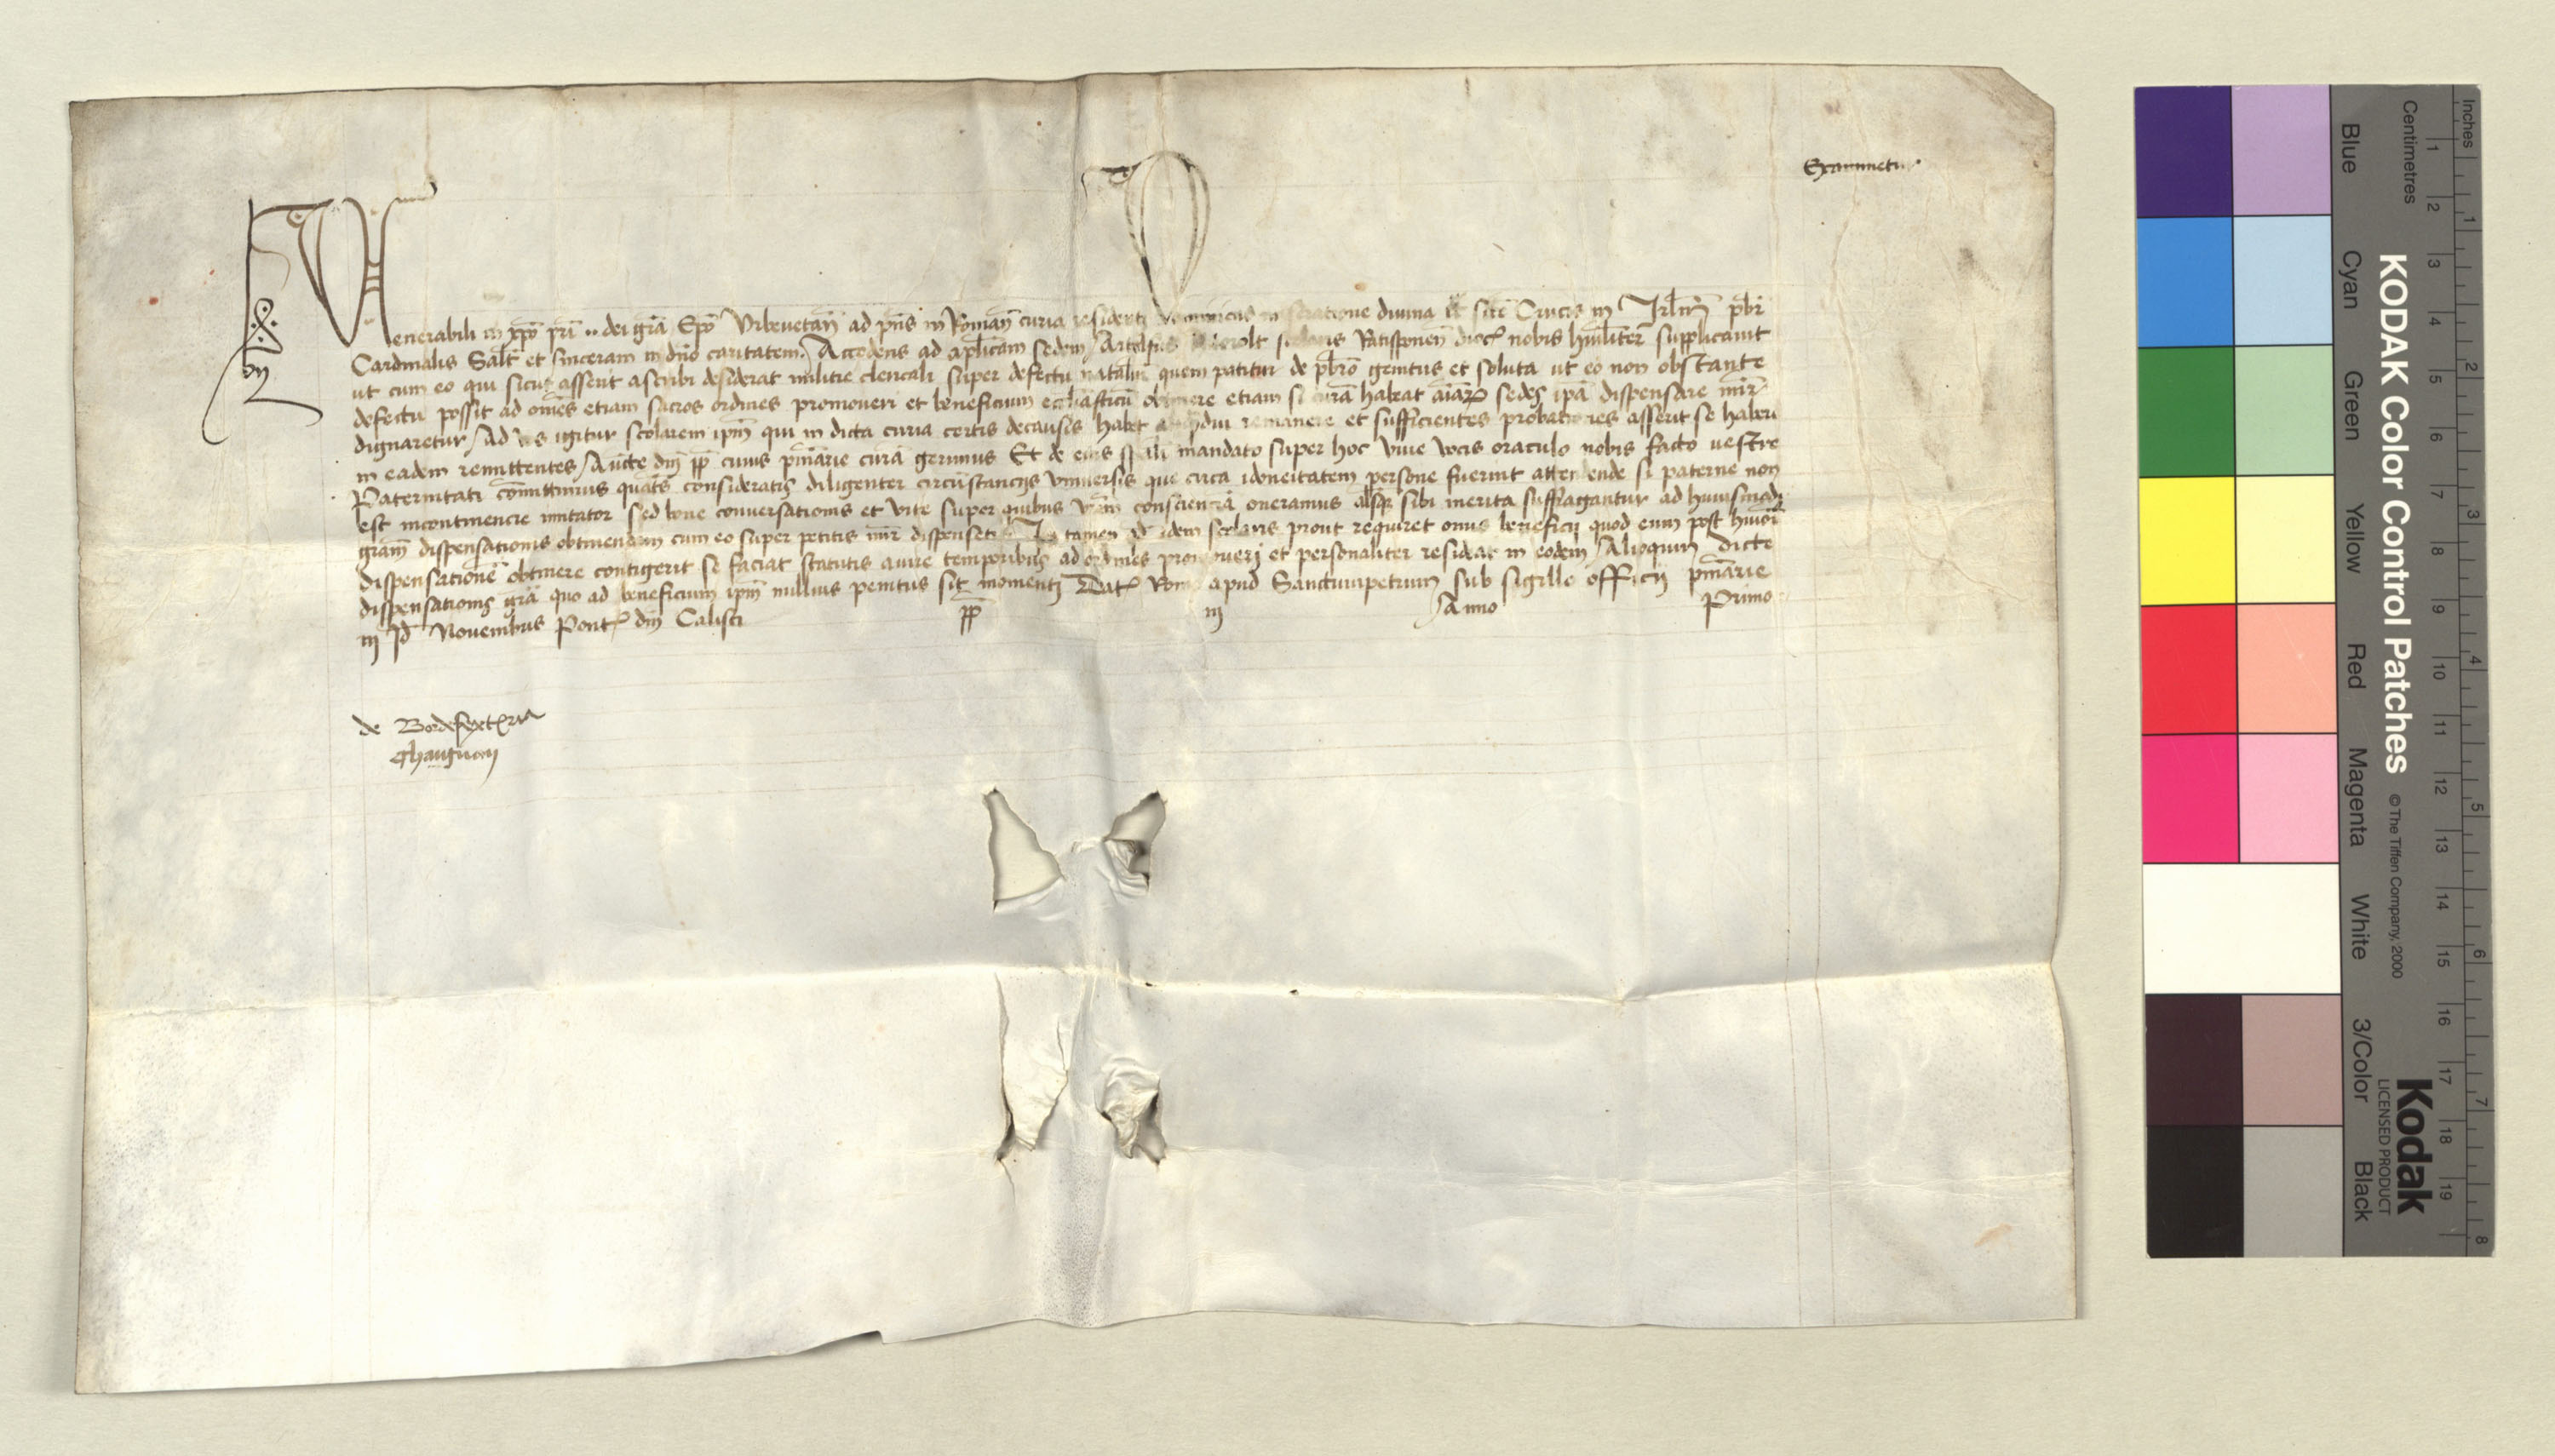 Examinetur
Venerabili in xpō prī .. dei grā Epō Vrbeuetan̄ ad pn̄s in Roman̄ curia residenti Dominicus miseratione diuina tt̄ sctē Crucis in Jrlm̄ pbr̄
Cardinalis Salt̄ et sinceram in dn̄o caritatem. Accedens ad aplicam sedem scolaris Ratisponen̄ dioc̄ nobis humilīter supplicauit
ut cum eo qui sicut asserit ascribi desiderat militie clericali super defectu natalīu quem patitur de pbr̄o genitus et soluta ut eo non obstante
defectu possit ad omēs etiam sacros ordines promoueri et beneficium eccliasticū obtinere etiam si curā habeat aīarꝝ sedes ipā dispensare mīr
dignaretur Ad vos igitur scolarem ipm̄ qui in dicta curia certis decausis habet remanere et sufficientes probatores asserit se habere
in eadem remittentes Aucte dn̄j pp̄ cuius pn̄iarie curā gerimus Et de eius spāli mandato super hoc viue vocis oraculo nobis facto uestre
Paternitati com̄ittimus quatēs consideratis diligenter circūstancijs vniuersis que circa idoneitatem persone fuerint attendende si paterne non
est incontinencie imitator sed bone conuersationis et vite super quibus vr̄am conscienciā oneramus aliāsqꝫ sibi merita suffragantur ad huiusmodi
grām dispensationis obtinendam cum eo super petitis mīr dispensetis Ita tamen qd̄ idem scolaris prout requiret onus beneficij quod eum post hm̄oi
dispensationē obtinere contigerit se faciat statutis a iure temporibus ad ordines promoueri et personaliter resideat in eodem Alioquin dicte
dispensationis grā quo ad beneficium ipm̄ nullius penitus sit momenti Dat̄ Rome apud Sanctumpetrum sub sigillo officij pn̄iarie
iij Id̄ Nouembris Pont̄ dn̄j Calisti pp̄ iij Anno Primo
de